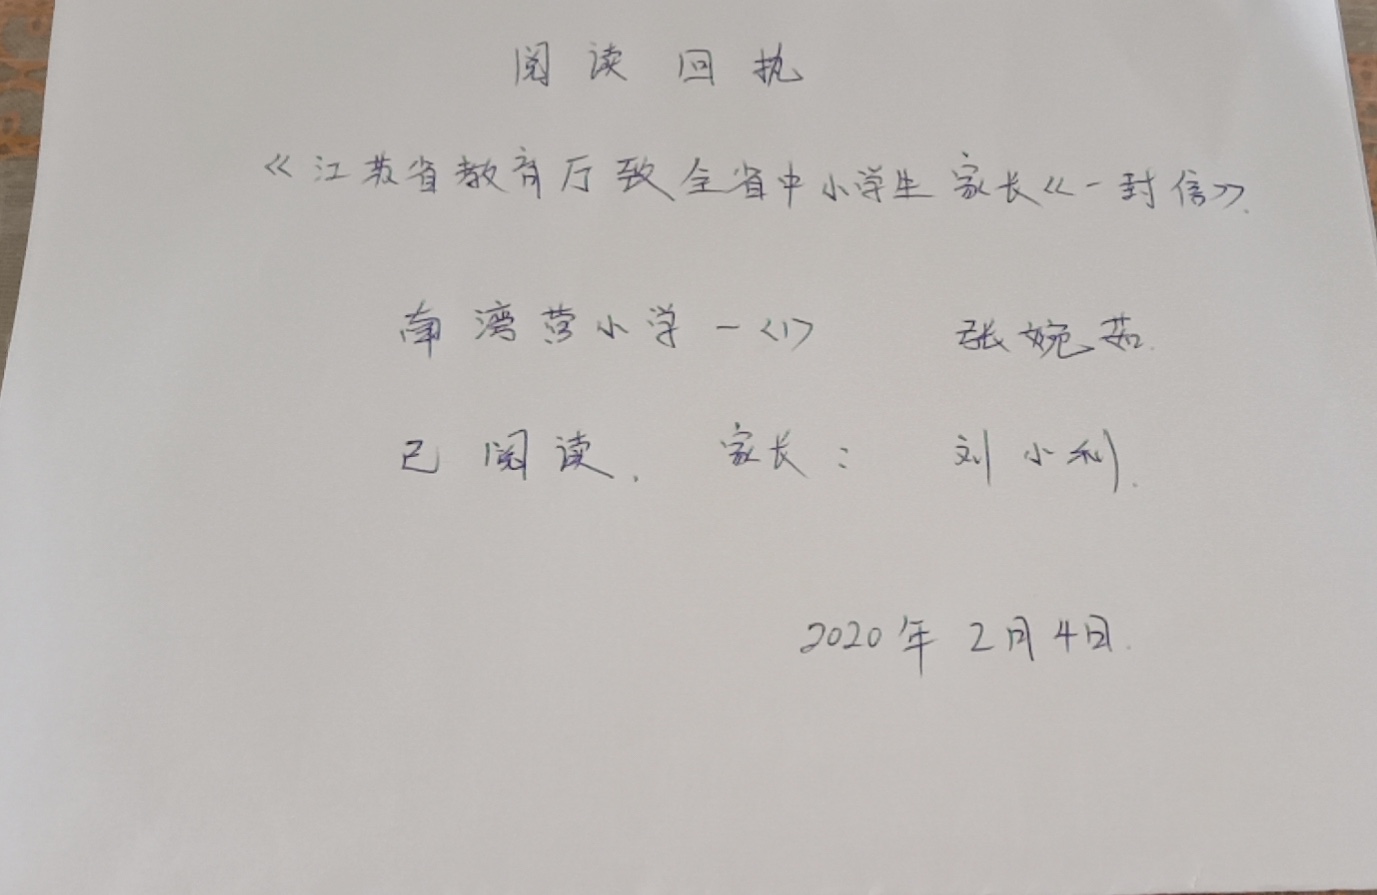 阅读回执
《江苏省教育厅致全省中小学生家长《一封信》.
南湾营小学一〈1〉 张婉茹.
已阅读. 家长: 刘小利.
2020年2月4日.